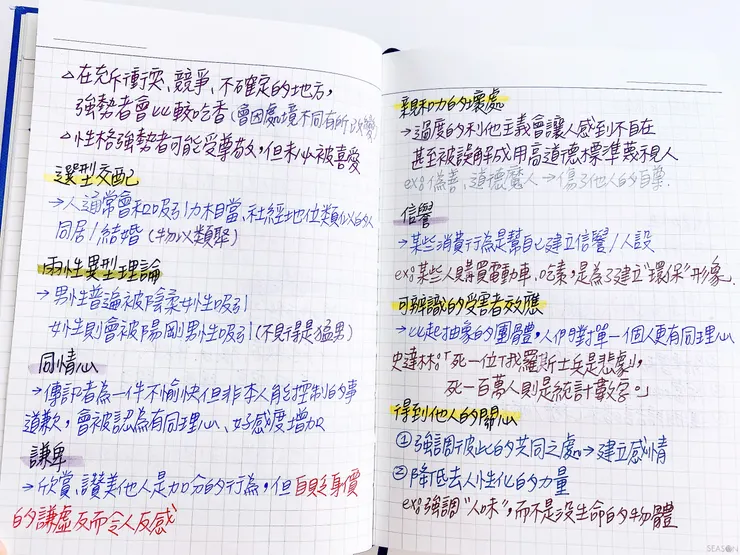 △在充斥衝突、競爭、不確定的地方,
強勢者會比較吃香(會因處境不同有所改變)
△性格強勢者可能受尊敬,但未必被喜愛
選型交配
→人通常會和吸引力相當、社經地位類似的人
同居/結婚(物以類聚)
兩性異型理論
→男性普遍被陰柔女性吸引
女性則會被陽剛男性吸引(不見得是猛男)
同情心
→傳訊者為一件不愉快但非本人能控制的事
道歉,會被認為有同理心、好感度增加
謙卑
→欣賞、讚美他人是加分的行為,但自貶身價
的謙虛反而令人反感
親和力的壞處
→過度的利他主義會讓人感到不自在
甚至被誤解成用高道德標準蔑視人
ex:偽善、道德魔人→傷了他人的自尊.
信譽
→某些消費行為是幫自己建立信譽/人設
ex:某些人購買電動車、吃素,是為了建立"環保"形象.
可辨識的受害者效應
→比起抽象的團體,人們對單一個人更有同理心
史達林:「死一位俄羅斯士兵是悲劇,
死一百萬人則是統計數字。」
得到他人的關心
①強調彼此的共同之處→建立感情
②降低去人性化的力量
ex:強調"人味",而不是沒生命的物體
SEASON